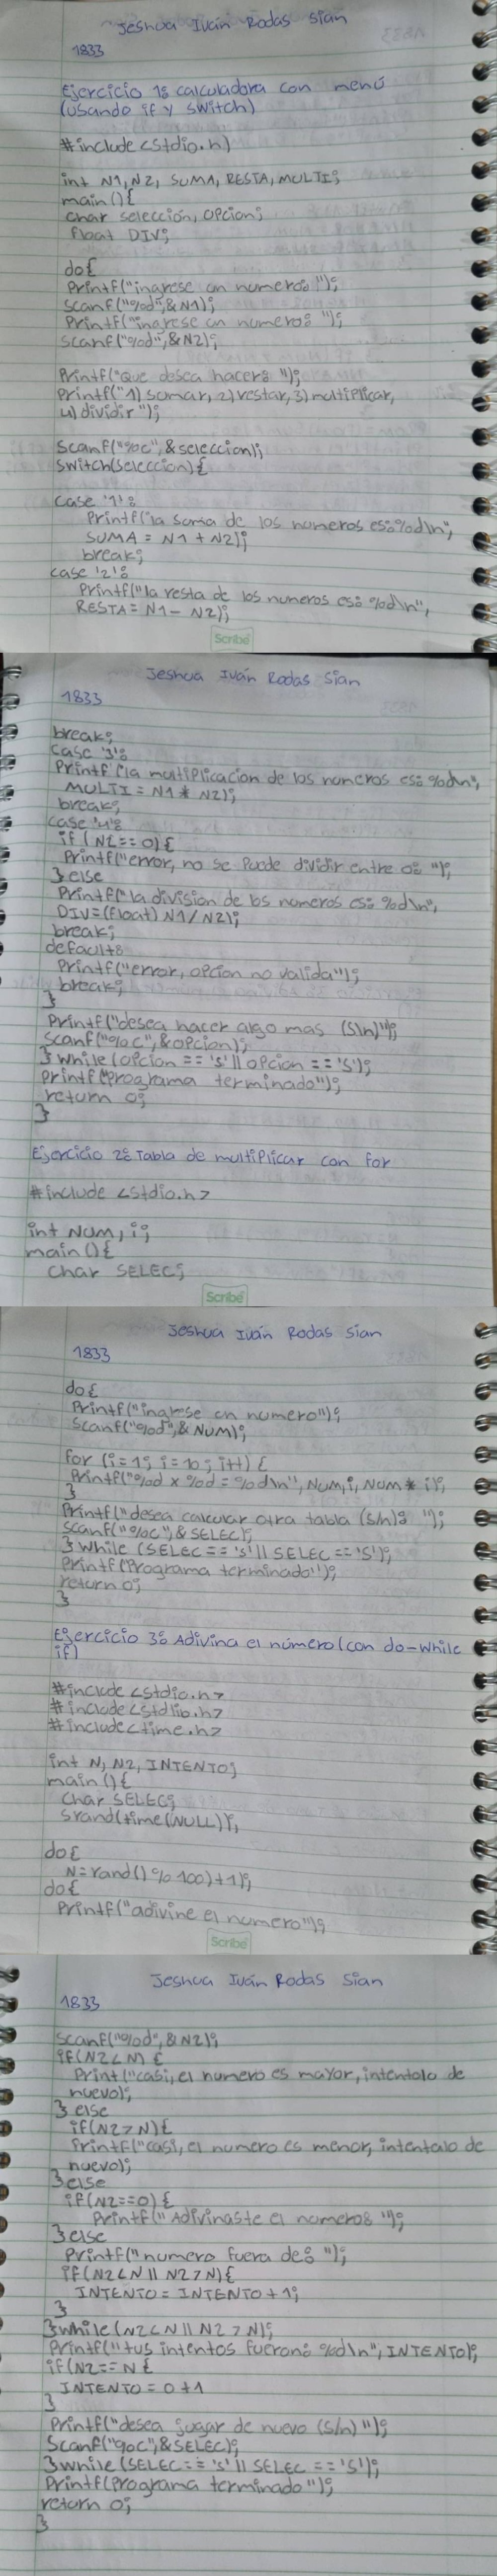 Jeshua Iván Rodas Sian
1833
Ejercicio 1: calculadora con menú
(usando if y switch)
#include <stdio.h)
int N1, N2, SUMA, RESTA, MULTI;
main(){
char selección, opcion;
float DIV;
do{
printf("ingrese un numero: ");
scanf("%d",&N1);
printf("ingrese un numero: ");
scanf("%d",&N2);
printf("Que desea hacer: ");
printf("1) sumar, 2) restar, 3) multiplicar,
4) dividir");
scanf("%c",&seleccion);
switch(seleccion){
case '1':
printf("la suma de los numeros es:%d\n",
SUMA = N1 + N2);
break;
case '2':
printf("la resta de los numeros es: %d\n",
RESTA = N1 - N2);
Scribe
Jeshua Iván Rodas Sian
1833
break;
case '3':
printf("la multiplicacion de los numeros es: %d\n",
MULTI = N1 * N2);
break;
case '4':
if (N2 == 0){
printf("error, no se puede dividir entre 0: ");
} else
printf("la division de los numeros es: %d\n",
DIV = (float) N1 / N2);
break;
default:
printf("error, opcion no valida");
break;
}
printf("desea hacer algo mas (s/n)");
scanf("%c",&opcion);
} while (opcion == 's' || opcion == 'S');
printf("programa terminado");
return 0;
}
Ejercicio 2: Tabla de multiplicar con for
#include <stdio.h>
int NUM, i;
main(){
char SELEC;
Scribe
Jeshua Iván Rodas Sian
1833
do{
printf("ingrese un numero");
scanf("%d",& NUM);
for (i=1; i=10; i++) {
printf("%d x %d = %d\n", NUM, i, NUM * i);
}
printf("desea calcular otra tabla (s/n): ");
scanf("%c",& SELEC);
} while (SELEC == 's' || SELEC == 'S');
printf(Programa terminado");
return 0;
}
Ejercicio 3: Adivina el número (con do-while
if)
#include <stdio.h>
#include <stdlib.h>
#include <time.h>
int N, N2, INTENTO;
main(){
char SELEC;
srand(time(NULL));
do{
N = rand() % 100) + 1);
do{
printf("adivine el numero");
Scribe
Jeshua Iván Rodas Sian
1833
scanf("%d",&N2);
if(N2 < N) {
Print("casi, el numero es mayor, intentolo de
nuevo);
} else
if(N2 > N){
printf("casi, el numero es menor, intentalo de
nuevo);
} else
if(N2==0) {
printf("Adivinaste el numero: ");
} else
printf("numero fuera de: ");
if (N2 < N || N2 > N){
INTENTO = INTENTO + 1;
}
} while (N2 < N || N2 > N);
printf("tus intentos fueron: %d\n", INTENTO);
if(N2 == N {
INTENTO = 0+1
}
printf("desea jugar de nuevo (s/n) ");
Scanf("%c",&SELEC);
} while (SELEC == 's' || SELEC == 'S');
printf(Programa terminado");
return 0;
}